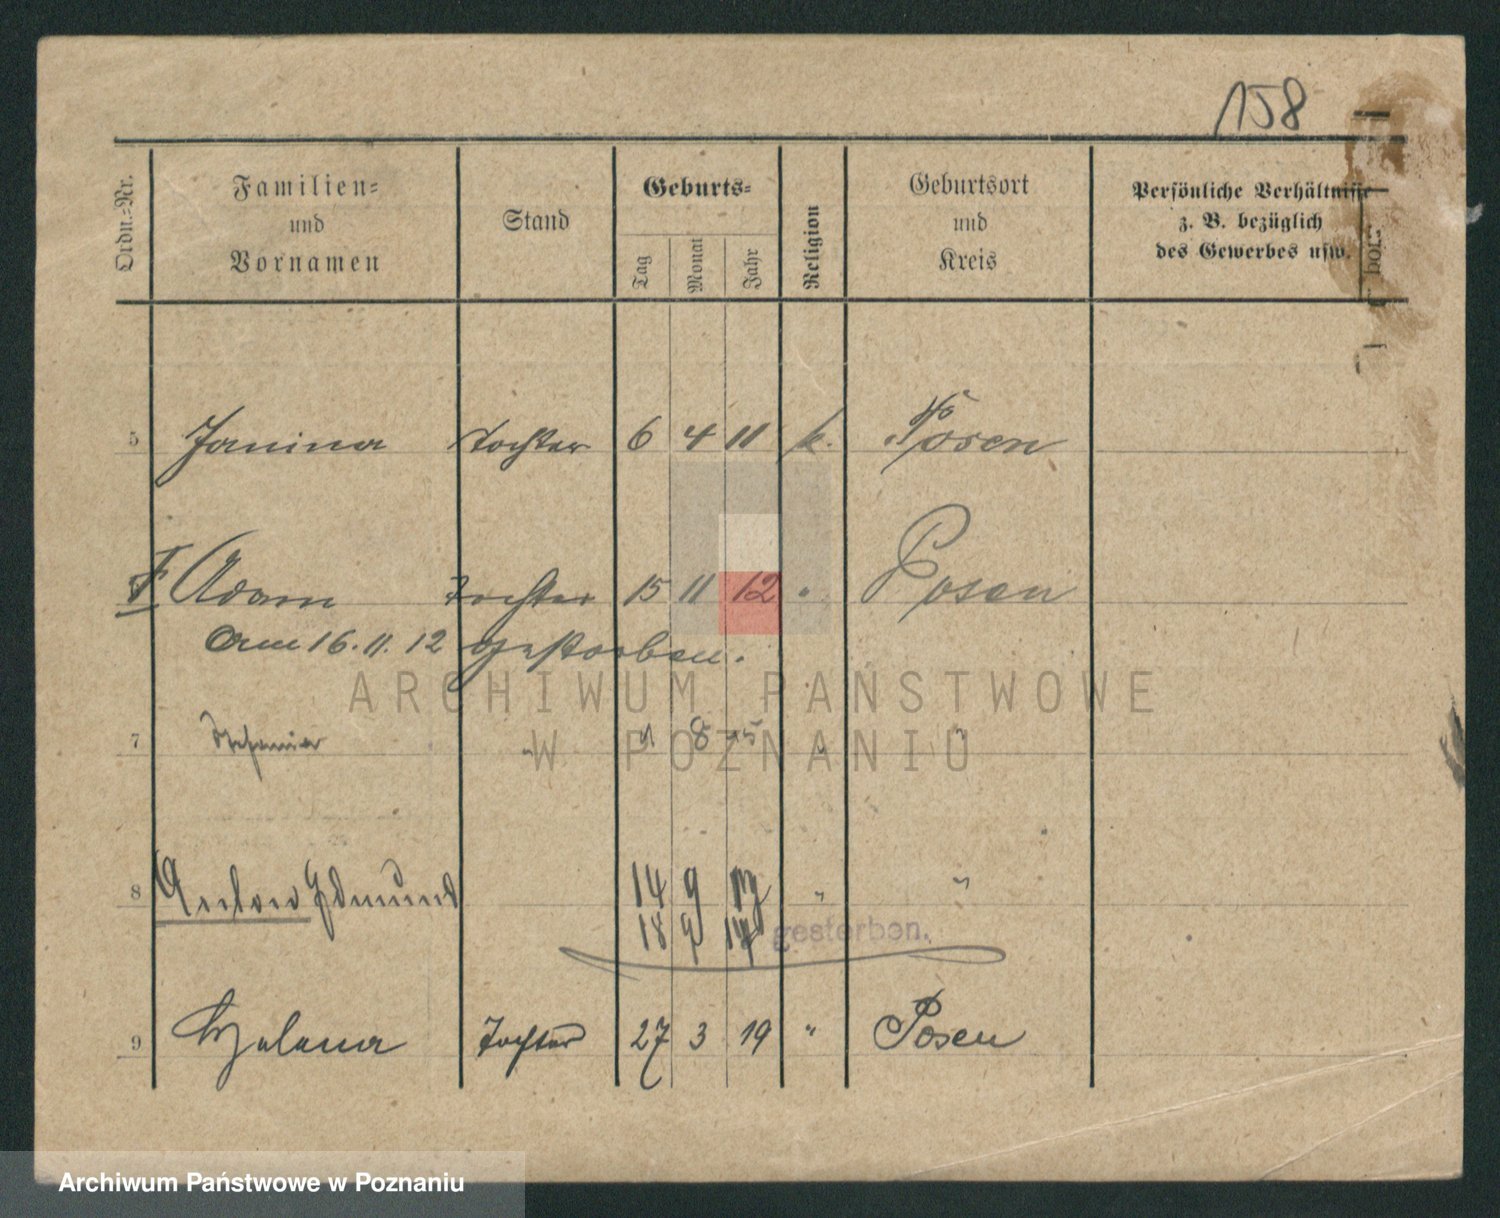 158
Ordn.=Nr.
Familien=
und
Vornamen
Stand
Geburts=
Tag
Monat
Jahr
Religion
Geburtsort
und
Kreis
Persönliche Verhältnisse
z. B. bezüglich
des Gewerbes usw.
5 Janina Tochter 6 4 11 k. Posen
Adam Tochter 15 11 12 " Posen
Am 16. 11. 12 gestorben.
7 " 1 8 15 " "
8 Anton Edmund 14 9 17 " "
18 9 17 gestorben.
9 Helena Tochter 27 3 19 " Posen
ARCHIWUM PAŃSTWOWE
W POZNANIU
Archiwum Państwowe w Poznaniu